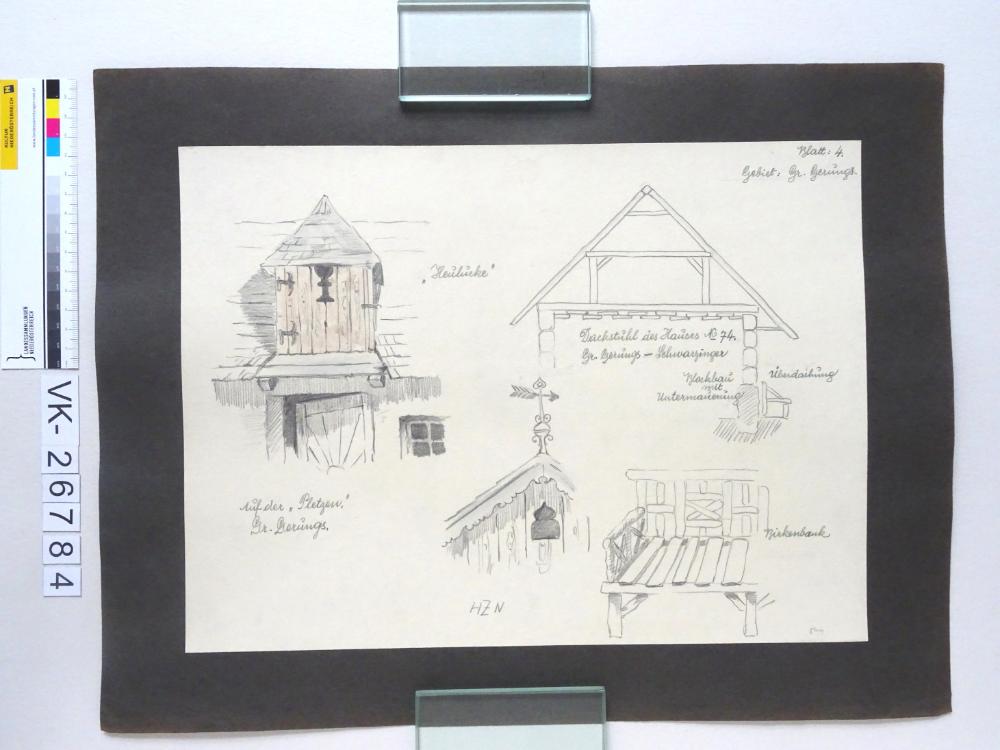 Blatt: 4.
Gebiet: Gr. Gerungs.
„Heulucke"
Dachstuhl des Hauses No 74.
Gr. Gerungs – Schwarzinger
Blockbau
mit
Untermauerung
Überdachung
Auf der „Pletzen."
Gr. Gerungs.
Birkenbank
HZN
KULTUR
NIEDERÖSTERREICH
LANDESSAMMLUNGEN
NIEDERÖSTERREICH
VK-26784